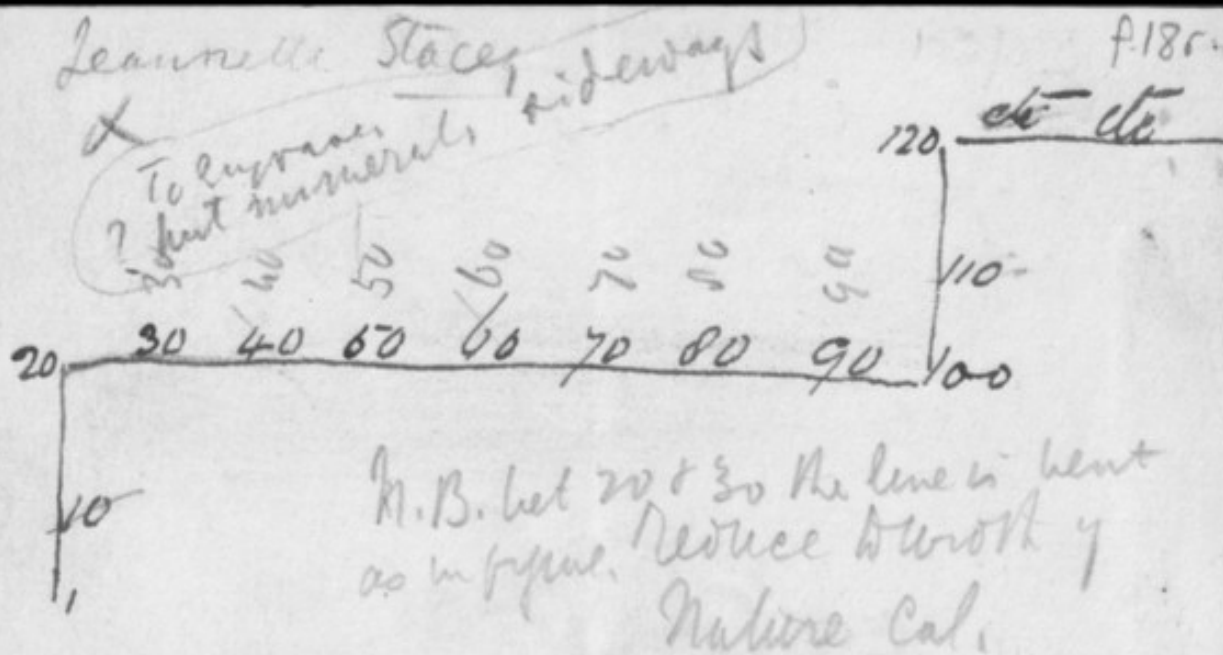 Jeannette Stacey
f.18r.
sideways
To engraver
? put numerals
etc etc
120
30 40 50 60 70 80 90
110
20 30 40 50 60 70 80 90 100
10
1
N.B. bet 20 & 30 the line is bent
as in figure. Reduce to width of
Nature Col.